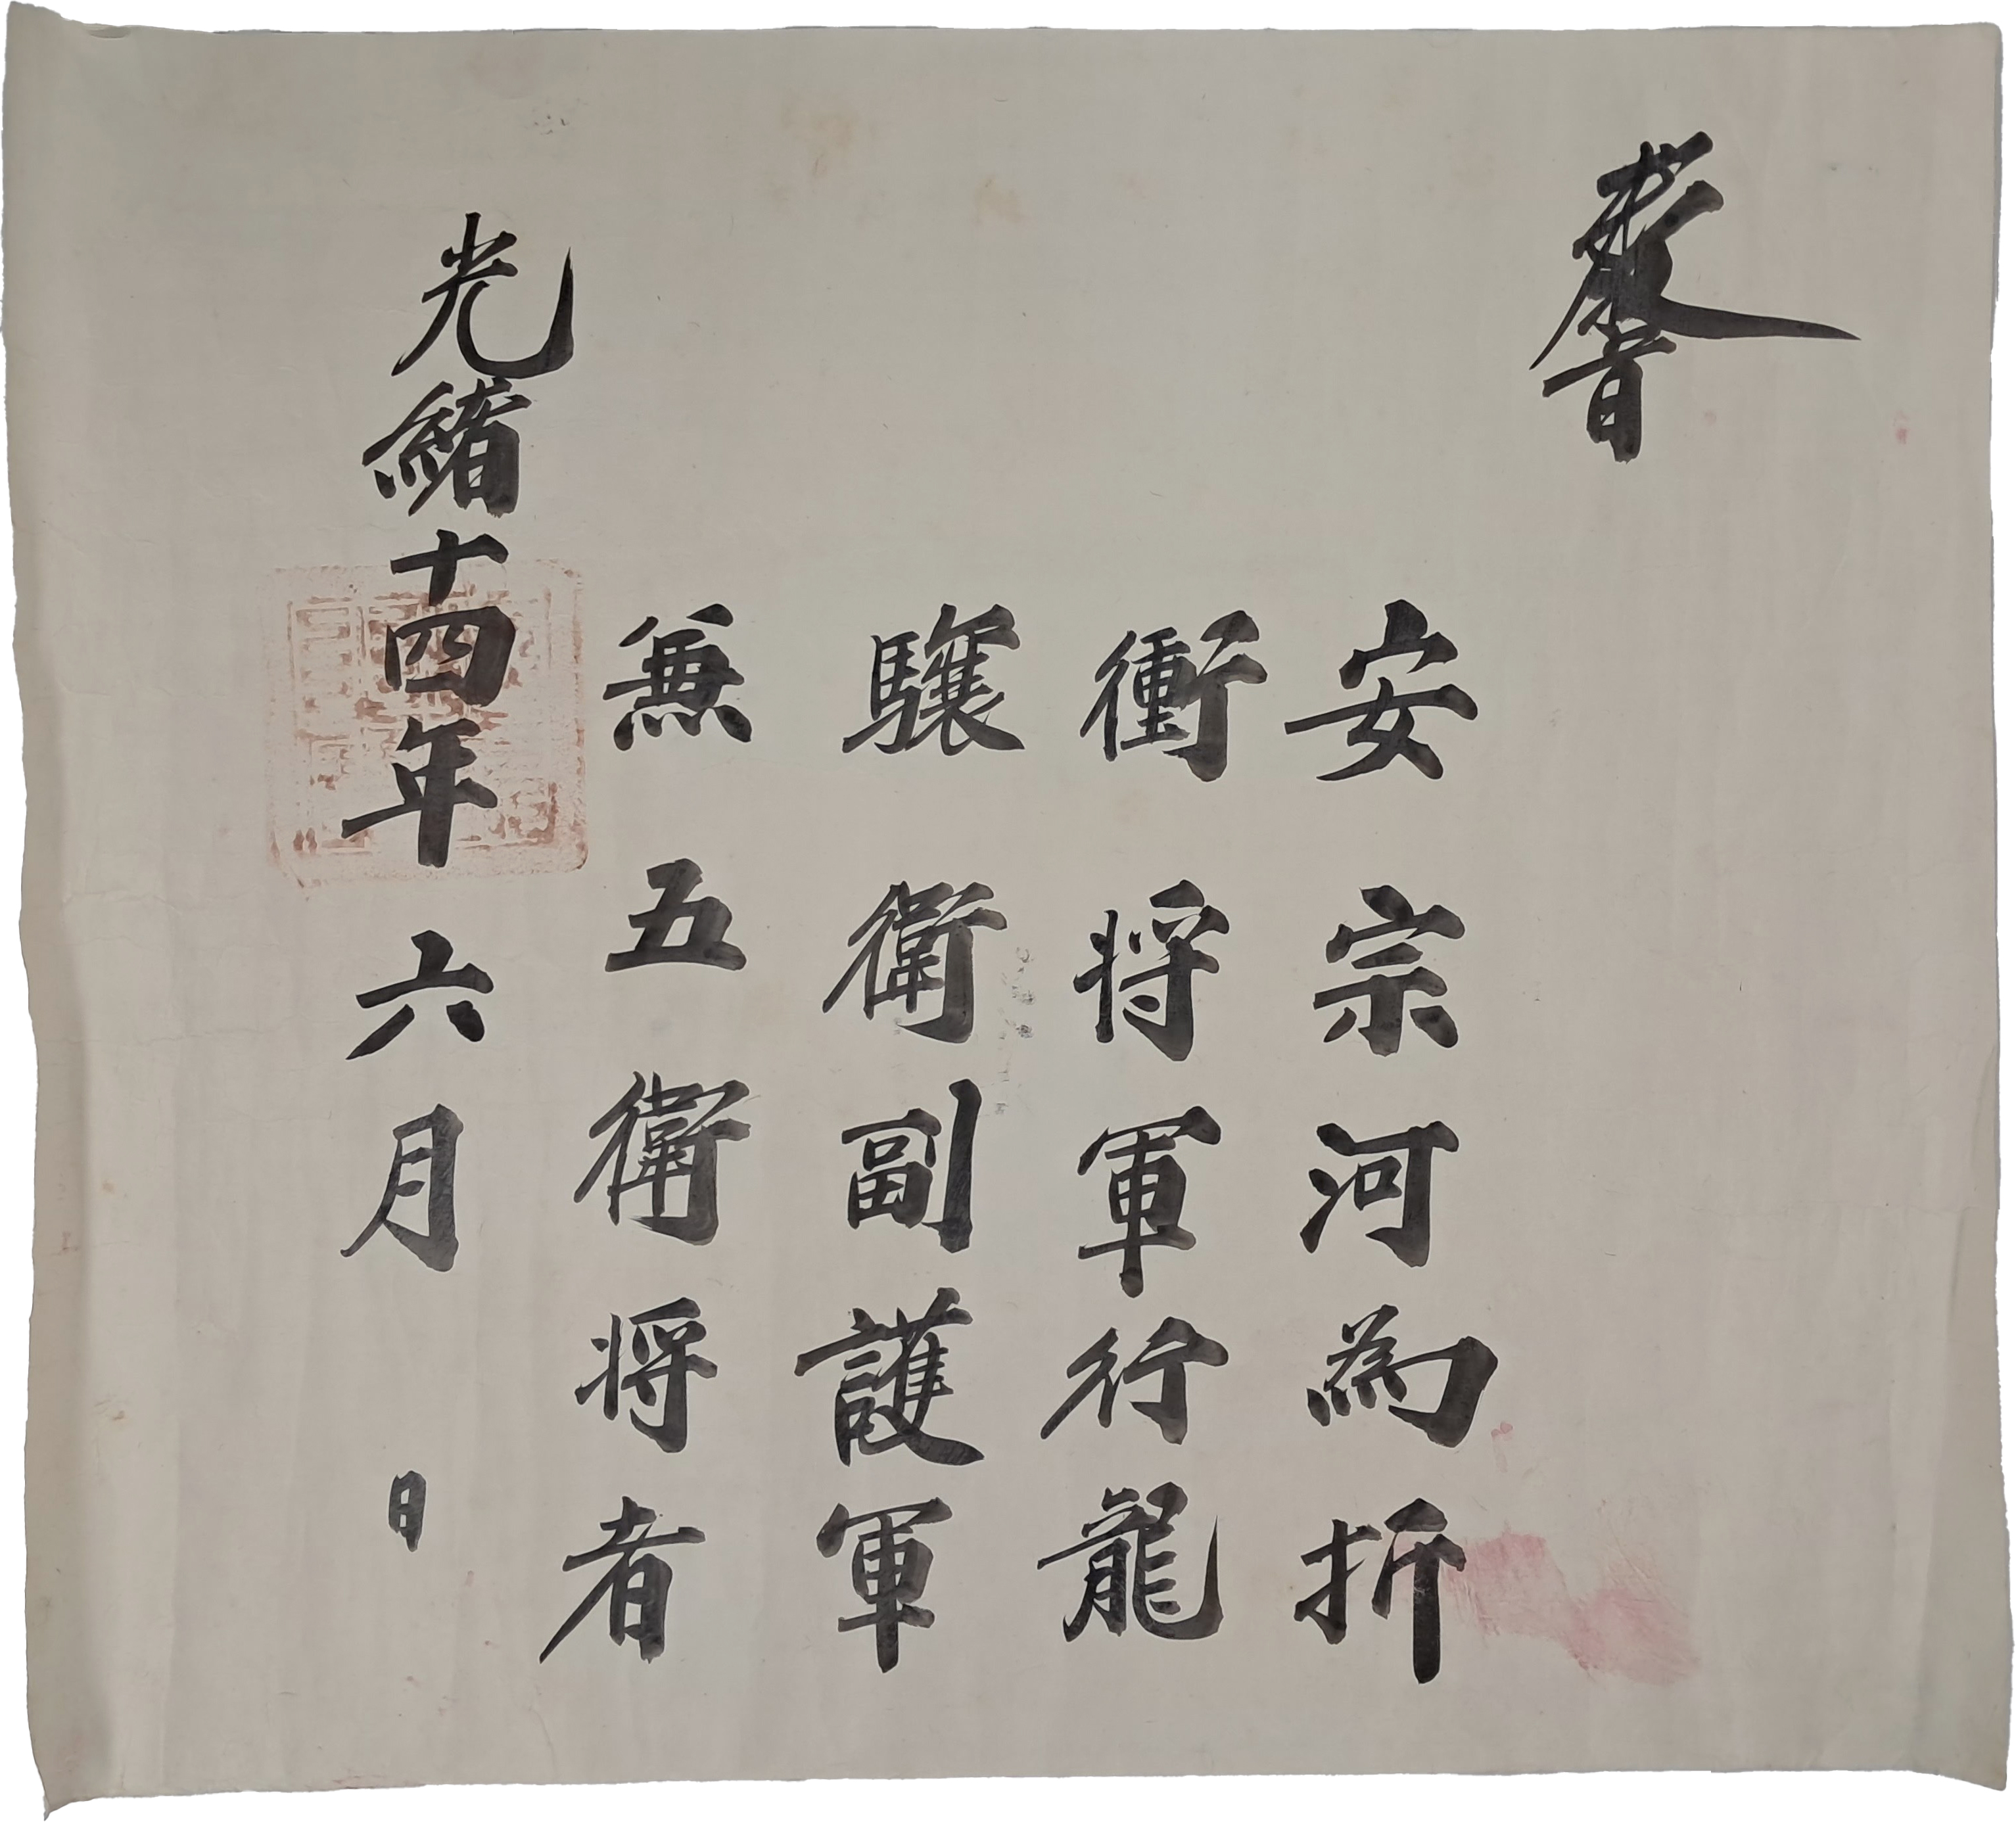 敎旨
安宗河為折
衝将軍行龍
驤衛副護軍
兼五衛将者
光緒十四年六月 日